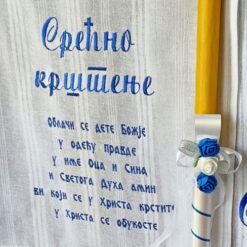 Срећно
крштење
облачи се дете Божје
у одећу правде
у име Оца и Сина
и Светога Духа амин
ви који се у Христа крстити
у Христа се обукосте